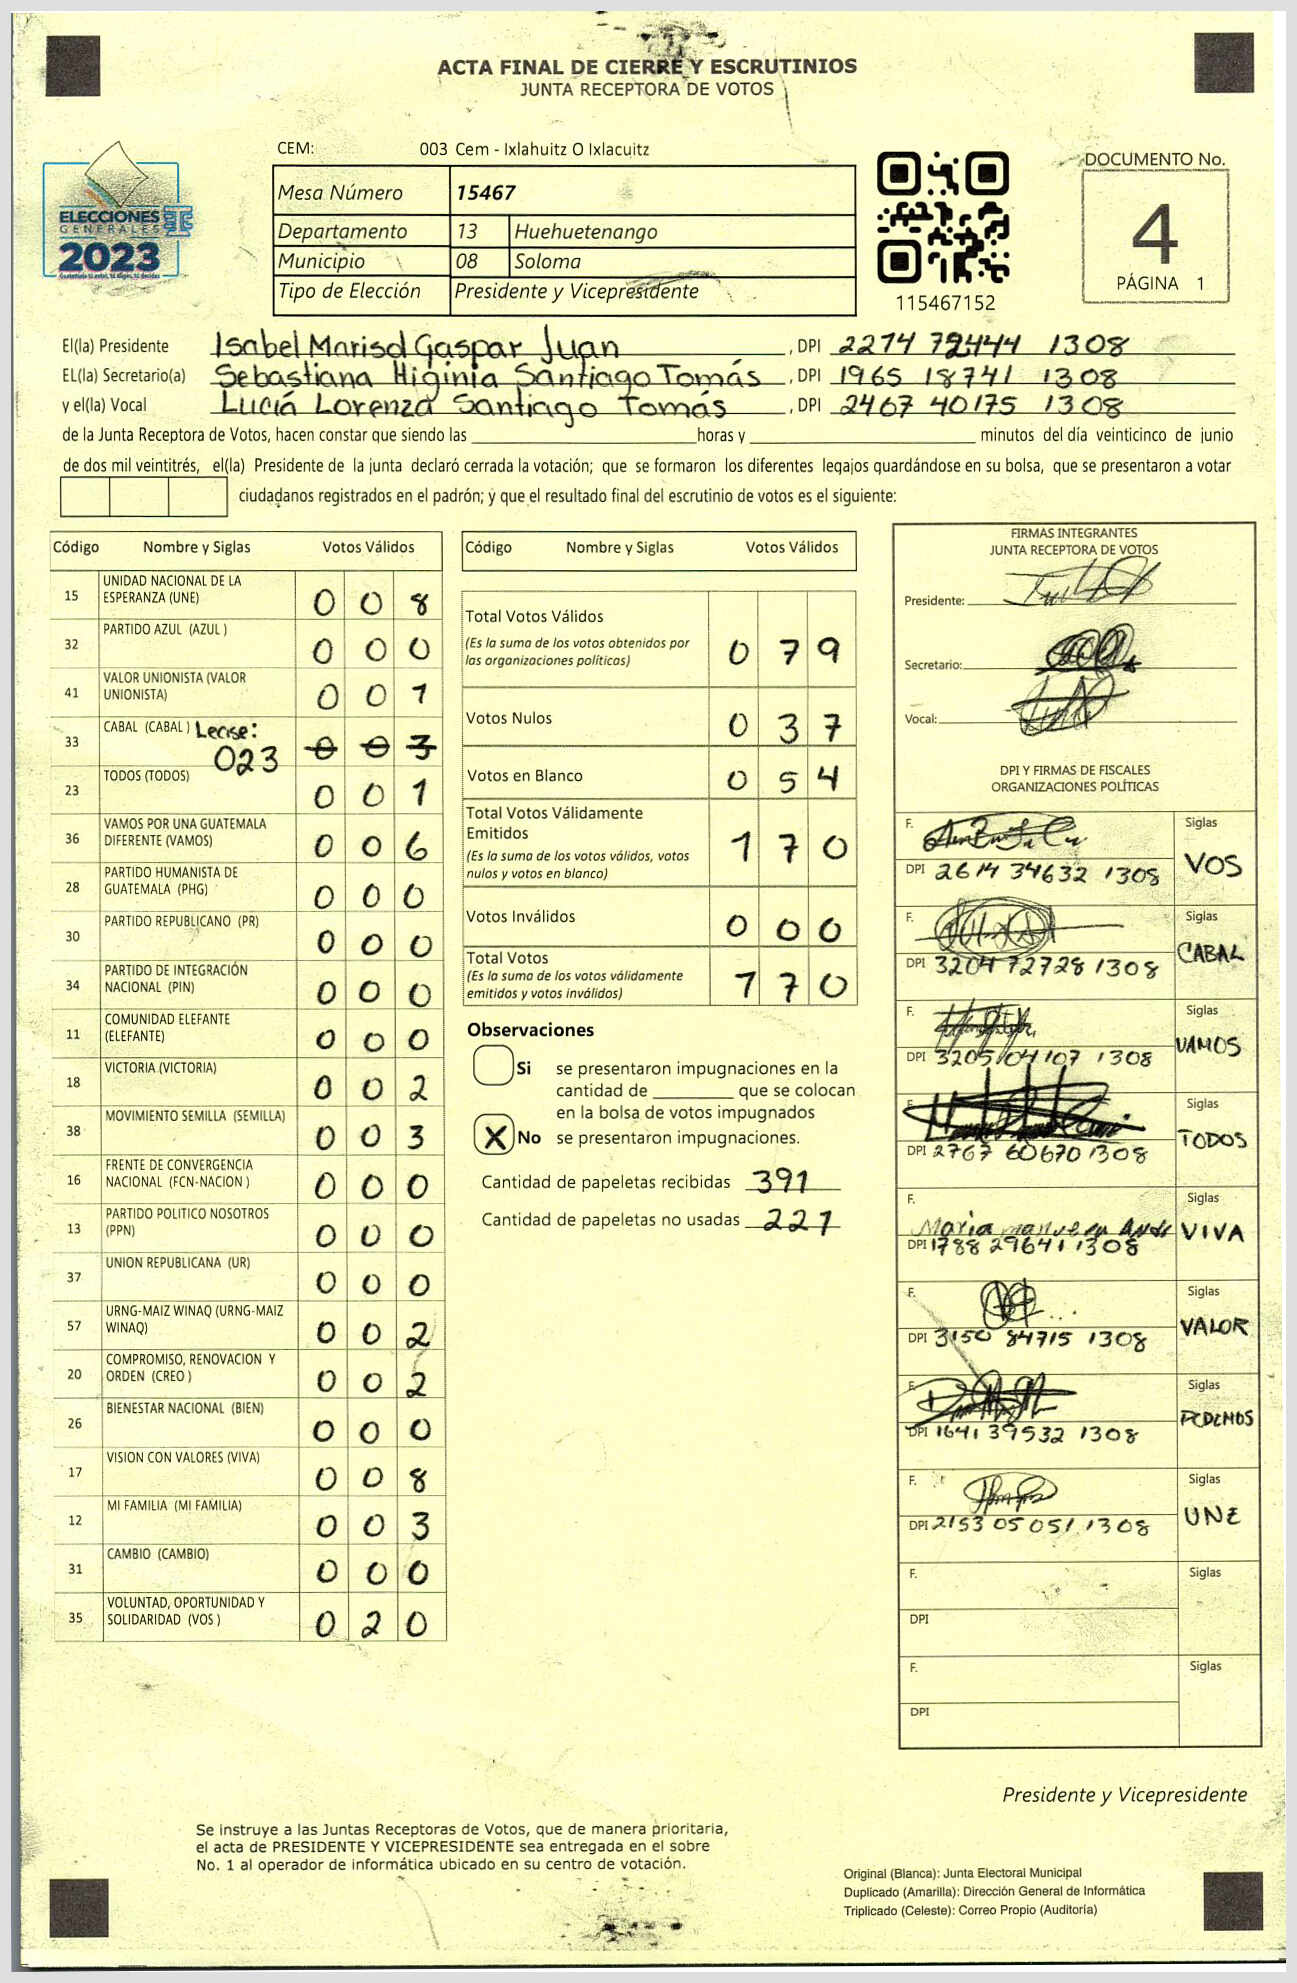 ACTA FINAL DE CIERRE Y ESCRUTINIOS
JUNTA RECEPTORA DE VOTOS
ELECCIONES
GENERALES
2023
TSE
CEM: 003 Cem - Ixlahuitz O Ixlacuitz
Mesa Número 15467
Departamento 13 Huehuetenango
Municipio 08 Soloma
Tipo de Elección Presidente y Vicepresidente
115467152
DOCUMENTO No.
4
PÁGINA 1
El(la) Presidente Isabel Marisol Gaspar Juan , DPI 2274 72444 1308
EL(la) Secretario(a) Sebastiana Higinia Santiago Tomás , DPI 1965 18741 1308
y el(la) Vocal Lucía Lorenza Santiago Tomás , DPI 2467 40175 1308
de la Junta Receptora de Votos, hacen constar que siendo las horas y minutos del día veinticinco de junio
de dos mil veintitrés, el(la) Presidente de la junta declaró cerrada la votación; que se formaron los diferentes legajos guardándose en su bolsa, que se presentaron a votar
ciudadanos registrados en el padrón; y que el resultado final del escrutinio de votos es el siguiente:
Código Nombre y Siglas Votos Válidos
15 UNIDAD NACIONAL DE LA ESPERANZA (UNE) 0 0 8
32 PARTIDO AZUL (AZUL ) 0 0 0
41 VALOR UNIONISTA (VALOR UNIONISTA) 0 0 1
33 CABAL (CABAL ) Lease: 023 0 0 3
23 TODOS (TODOS) 0 0 1
36 VAMOS POR UNA GUATEMALA DIFERENTE (VAMOS) 0 0 6
28 PARTIDO HUMANISTA DE GUATEMALA (PHG) 0 0 0
30 PARTIDO REPUBLICANO (PR) 0 0 0
34 PARTIDO DE INTEGRACIÓN NACIONAL (PIN) 0 0 0
11 COMUNIDAD ELEFANTE (ELEFANTE) 0 0 0
18 VICTORIA (VICTORIA) 0 0 2
38 MOVIMIENTO SEMILLA (SEMILLA) 0 0 3
16 FRENTE DE CONVERGENCIA NACIONAL (FCN-NACION ) 0 0 0
13 PARTIDO POLITICO NOSOTROS (PPN) 0 0 0
37 UNION REPUBLICANA (UR) 0 0 0
57 URNG-MAIZ WINAQ (URNG-MAIZ WINAQ) 0 0 2
20 COMPROMISO, RENOVACION Y ORDEN (CREO ) 0 0 2
26 BIENESTAR NACIONAL (BIEN) 0 0 0
17 VISION CON VALORES (VIVA) 0 0 8
12 MI FAMILIA (MI FAMILIA) 0 0 3
31 CAMBIO (CAMBIO) 0 0 0
35 VOLUNTAD, OPORTUNIDAD Y SOLIDARIDAD (VOS ) 0 2 0
Código Nombre y Siglas Votos Válidos
Total Votos Válidos 0 7 9
(Es la suma de los votos obtenidos por
las organizaciones políticas)
Votos Nulos 0 3 7
Votos en Blanco 0 5 4
Total Votos Válidamente
Emitidos 1 7 0
(Es la suma de los votos válidos, votos
nulos y votos en blanco)
Votos Inválidos 0 0 0
Total Votos 1 7 0
(Es la suma de los votos válidamente
emitidos y votos inválidos)
Observaciones
Si se presentaron impugnaciones en la
cantidad de que se colocan
en la bolsa de votos impugnados
X No se presentaron impugnaciones.
Cantidad de papeletas recibidas 391
Cantidad de papeletas no usadas 221
FIRMAS INTEGRANTES
JUNTA RECEPTORA DE VOTOS
Presidente:
Secretario:
Vocal:
DPI Y FIRMAS DE FISCALES
ORGANIZACIONES POLÍTICAS
F. Siglas
DPI 2614 34632 1308 VOS
F. Siglas
DPI 3204 72728 1308 CABAL
F. Siglas
DPI 3205 04107 1308 VAMOS
F. Siglas
DPI 2767 60670 1308 TODOS
F. Siglas
Maria
DPI 1788 29641 1308 VIVA
F. Siglas
DPI 3150 84715 1308 VALOR
F. Siglas
DPI 1641 39532 1308 PODEMOS
F. Siglas
DPI 2153 05051 1308 UNE
F. Siglas
DPI
F. Siglas
DPI
Presidente y Vicepresidente
Se instruye a las Juntas Receptoras de Votos, que de manera prioritaria,
el acta de PRESIDENTE Y VICEPRESIDENTE sea entregada en el sobre
No. 1 al operador de informática ubicado en su centro de votación.
Original (Blanca): Junta Electoral Municipal
Duplicado (Amarilla): Dirección General de Informática
Triplicado (Celeste): Correo Propio (Auditoria)